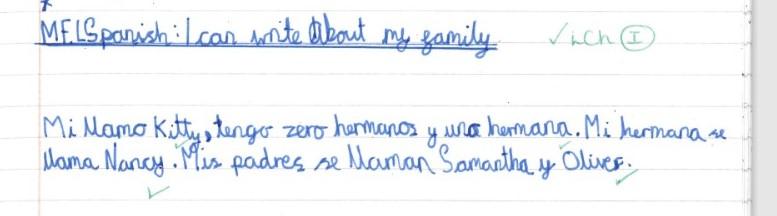 MFL Spanish: I can write about my family ✓ich I
Mi llamo Kitty, tengo zero hermanos y una hermana. Mi hermana se
llama Nancy. Mis padres se llaman Samantha y Oliver.